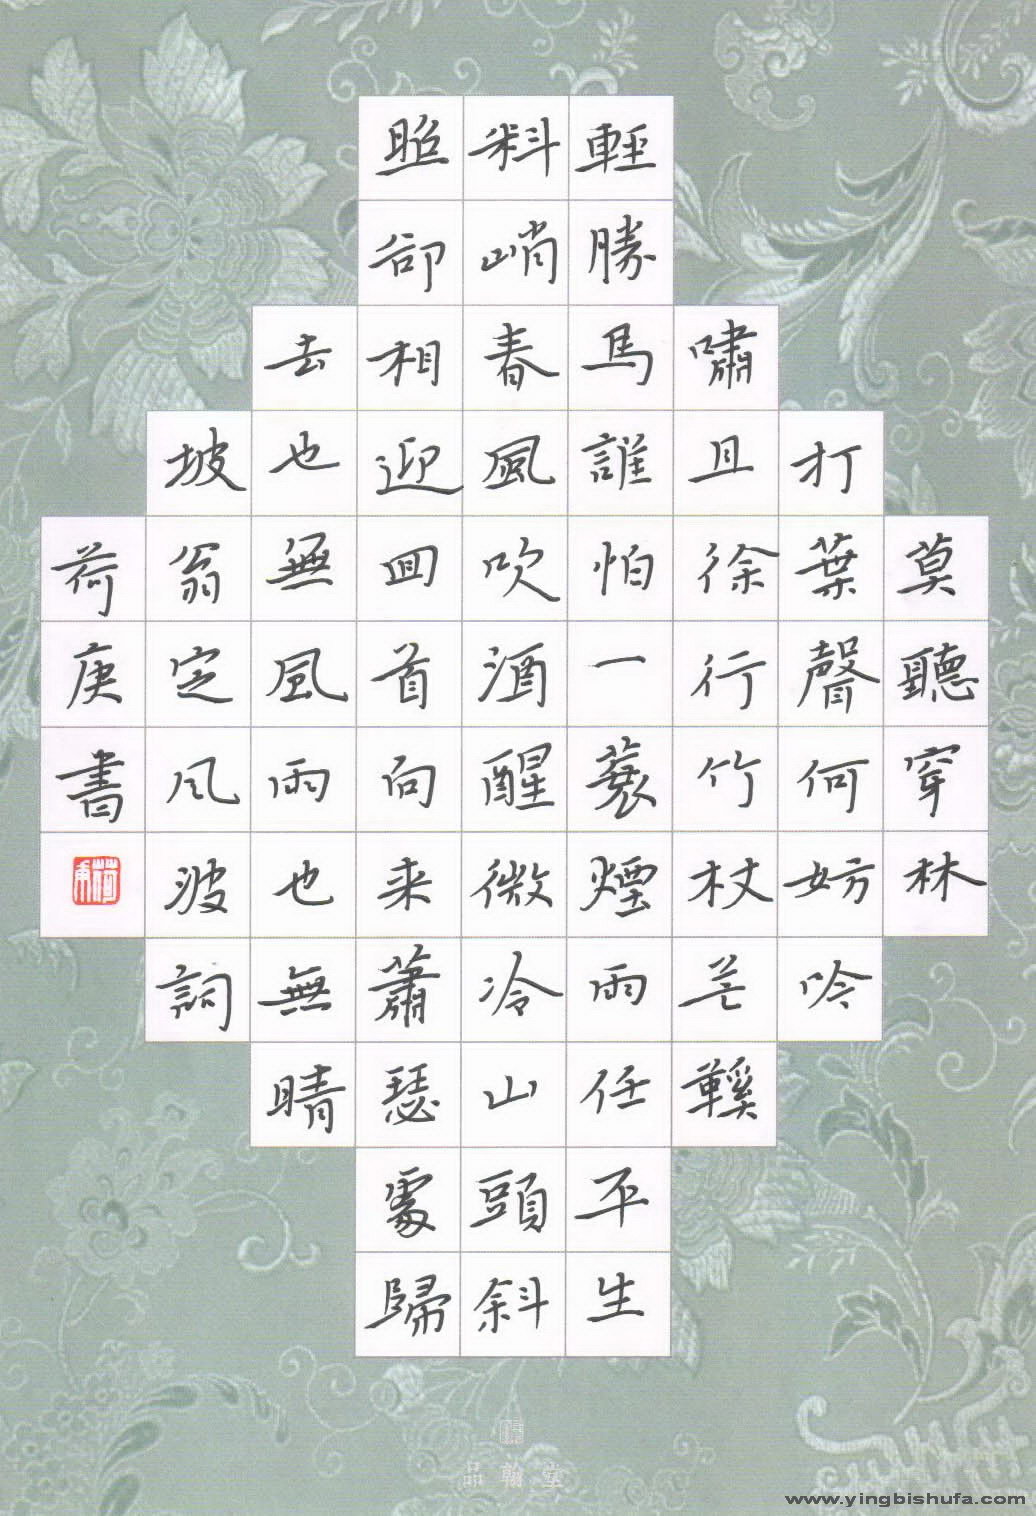 莫聽穿林
打葉聲何妨吟
嘯且徐行竹杖芒鞵
輕勝馬誰怕一蓑煙雨任平生
料峭春風吹酒醒微冷山頭斜
照卻相迎囬首向来蕭瑟處歸
去也無風雨也無晴
坡翁定风波詞
荷庚書
品翰堂
www.yingbishufa.com